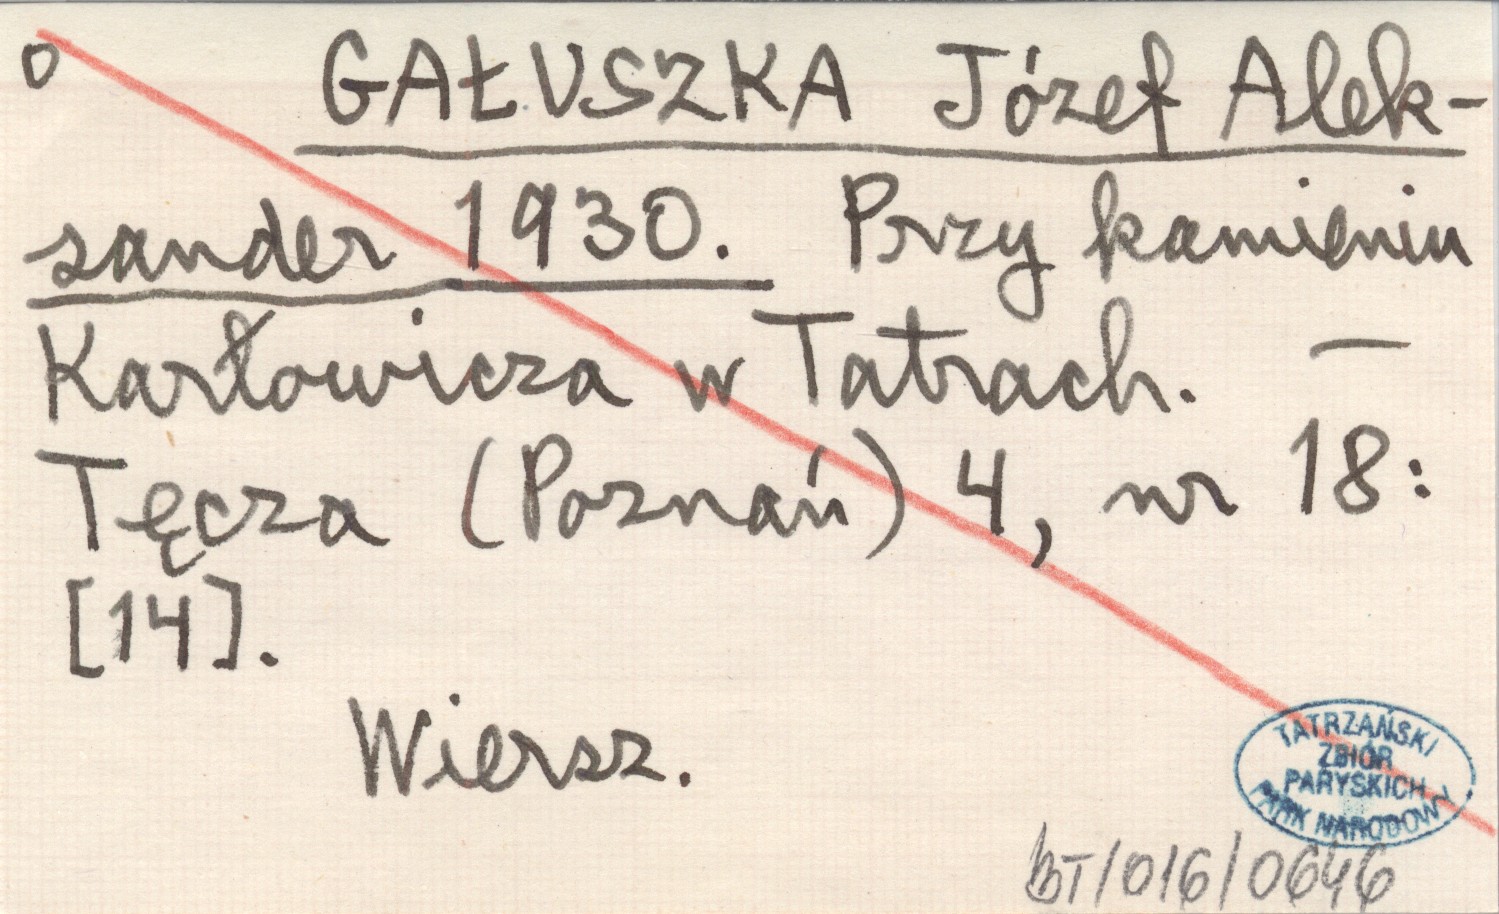 o GAŁUSZKA Józef Alek-
sander 1930. Przy kamieniu
Karłowicza w Tatrach. —
Tęcza (Poznań) 4, nr 18:
[14].
Wiersz.
TATRZAŃSKI
ZBIÓR
PARYSKICH
PARK NARODOWY
BT/016/0646